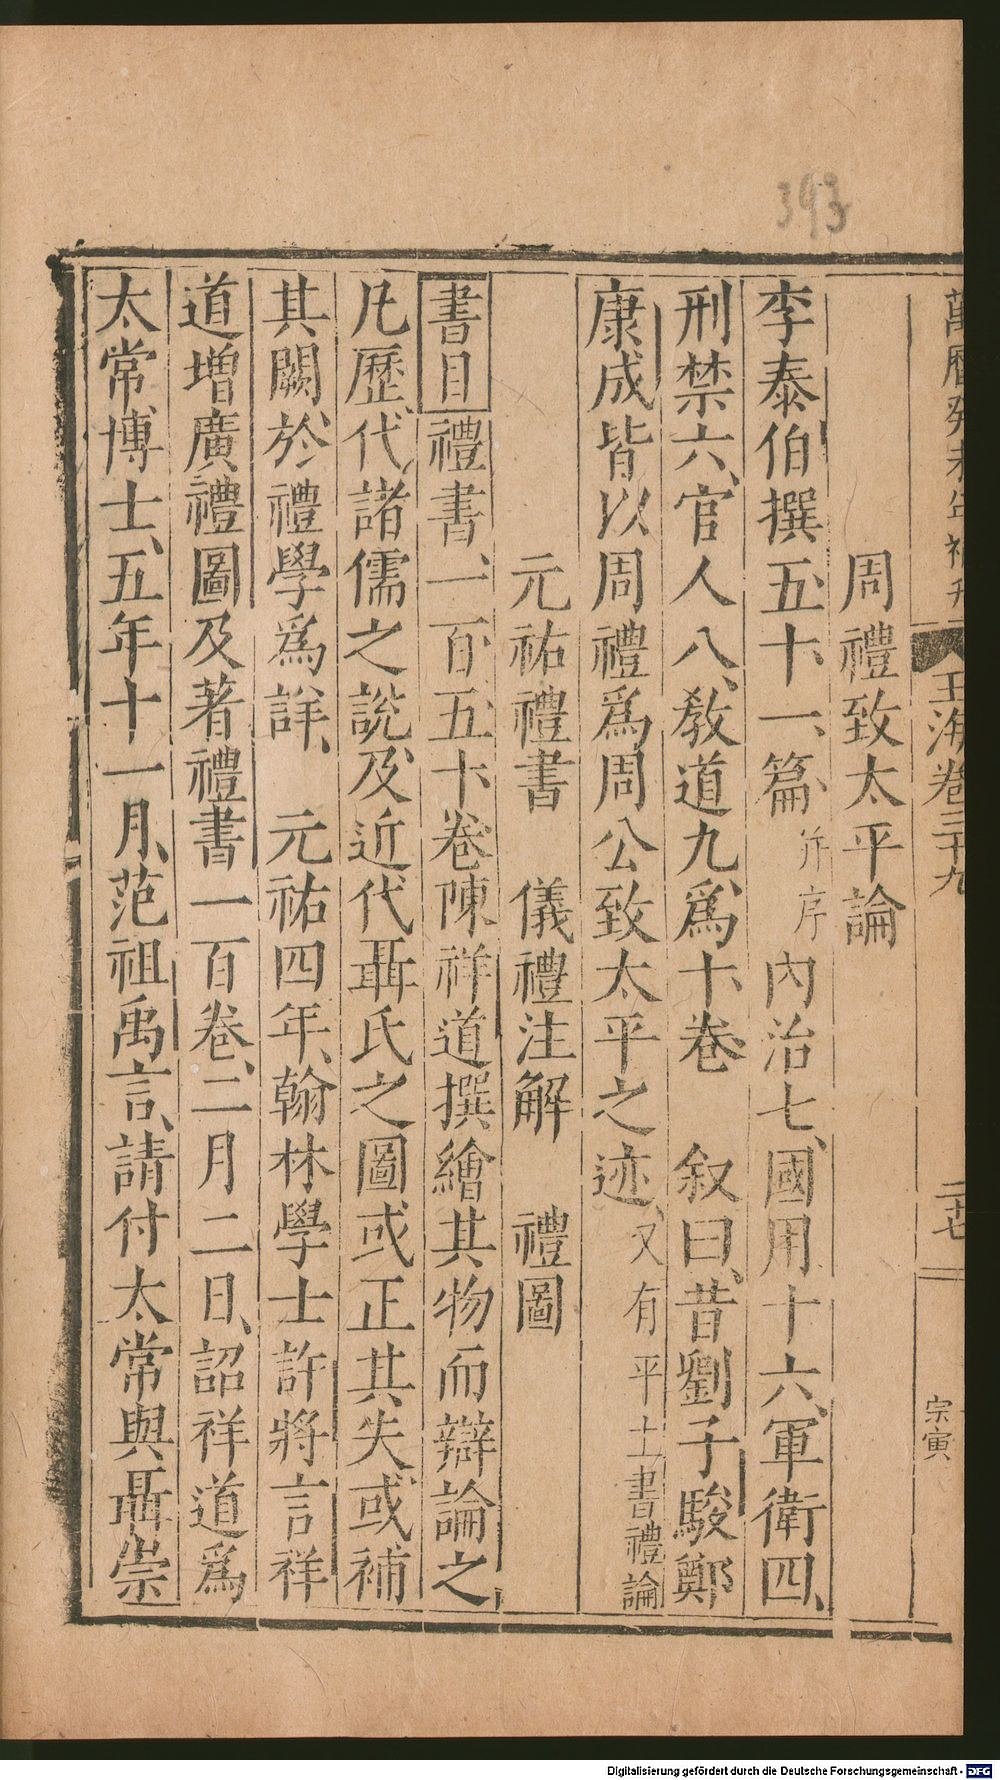 393
萬曆癸未年補刊
玉海卷三十九
二十七
宗寅
周禮致太平論
李泰伯撰五十一篇并序內治七、國用十六、軍衛四、
刑禁六、官人八、敎道九爲十卷 叙曰、昔劉子駿鄭
康成皆以周禮爲周公致太平之迹、又有平土書禮論
元祐禮書 儀禮注解 禮圖
書目禮書、一百五十卷陳祥道撰繪其物而辯論之
凡歷代諸儒之說及近代聶氏之圖或正其失或補
其闕於禮學爲詳、 元祐四年、翰林學士許將言祥
道增廣禮圖及著禮書一百卷、二月二日、詔祥道爲
太常博士、五年十一月、范祖禹言、請付太常與聶崇
Digitalisierung gefördert durch die Deutsche Forschungsgemeinschaft - DFG